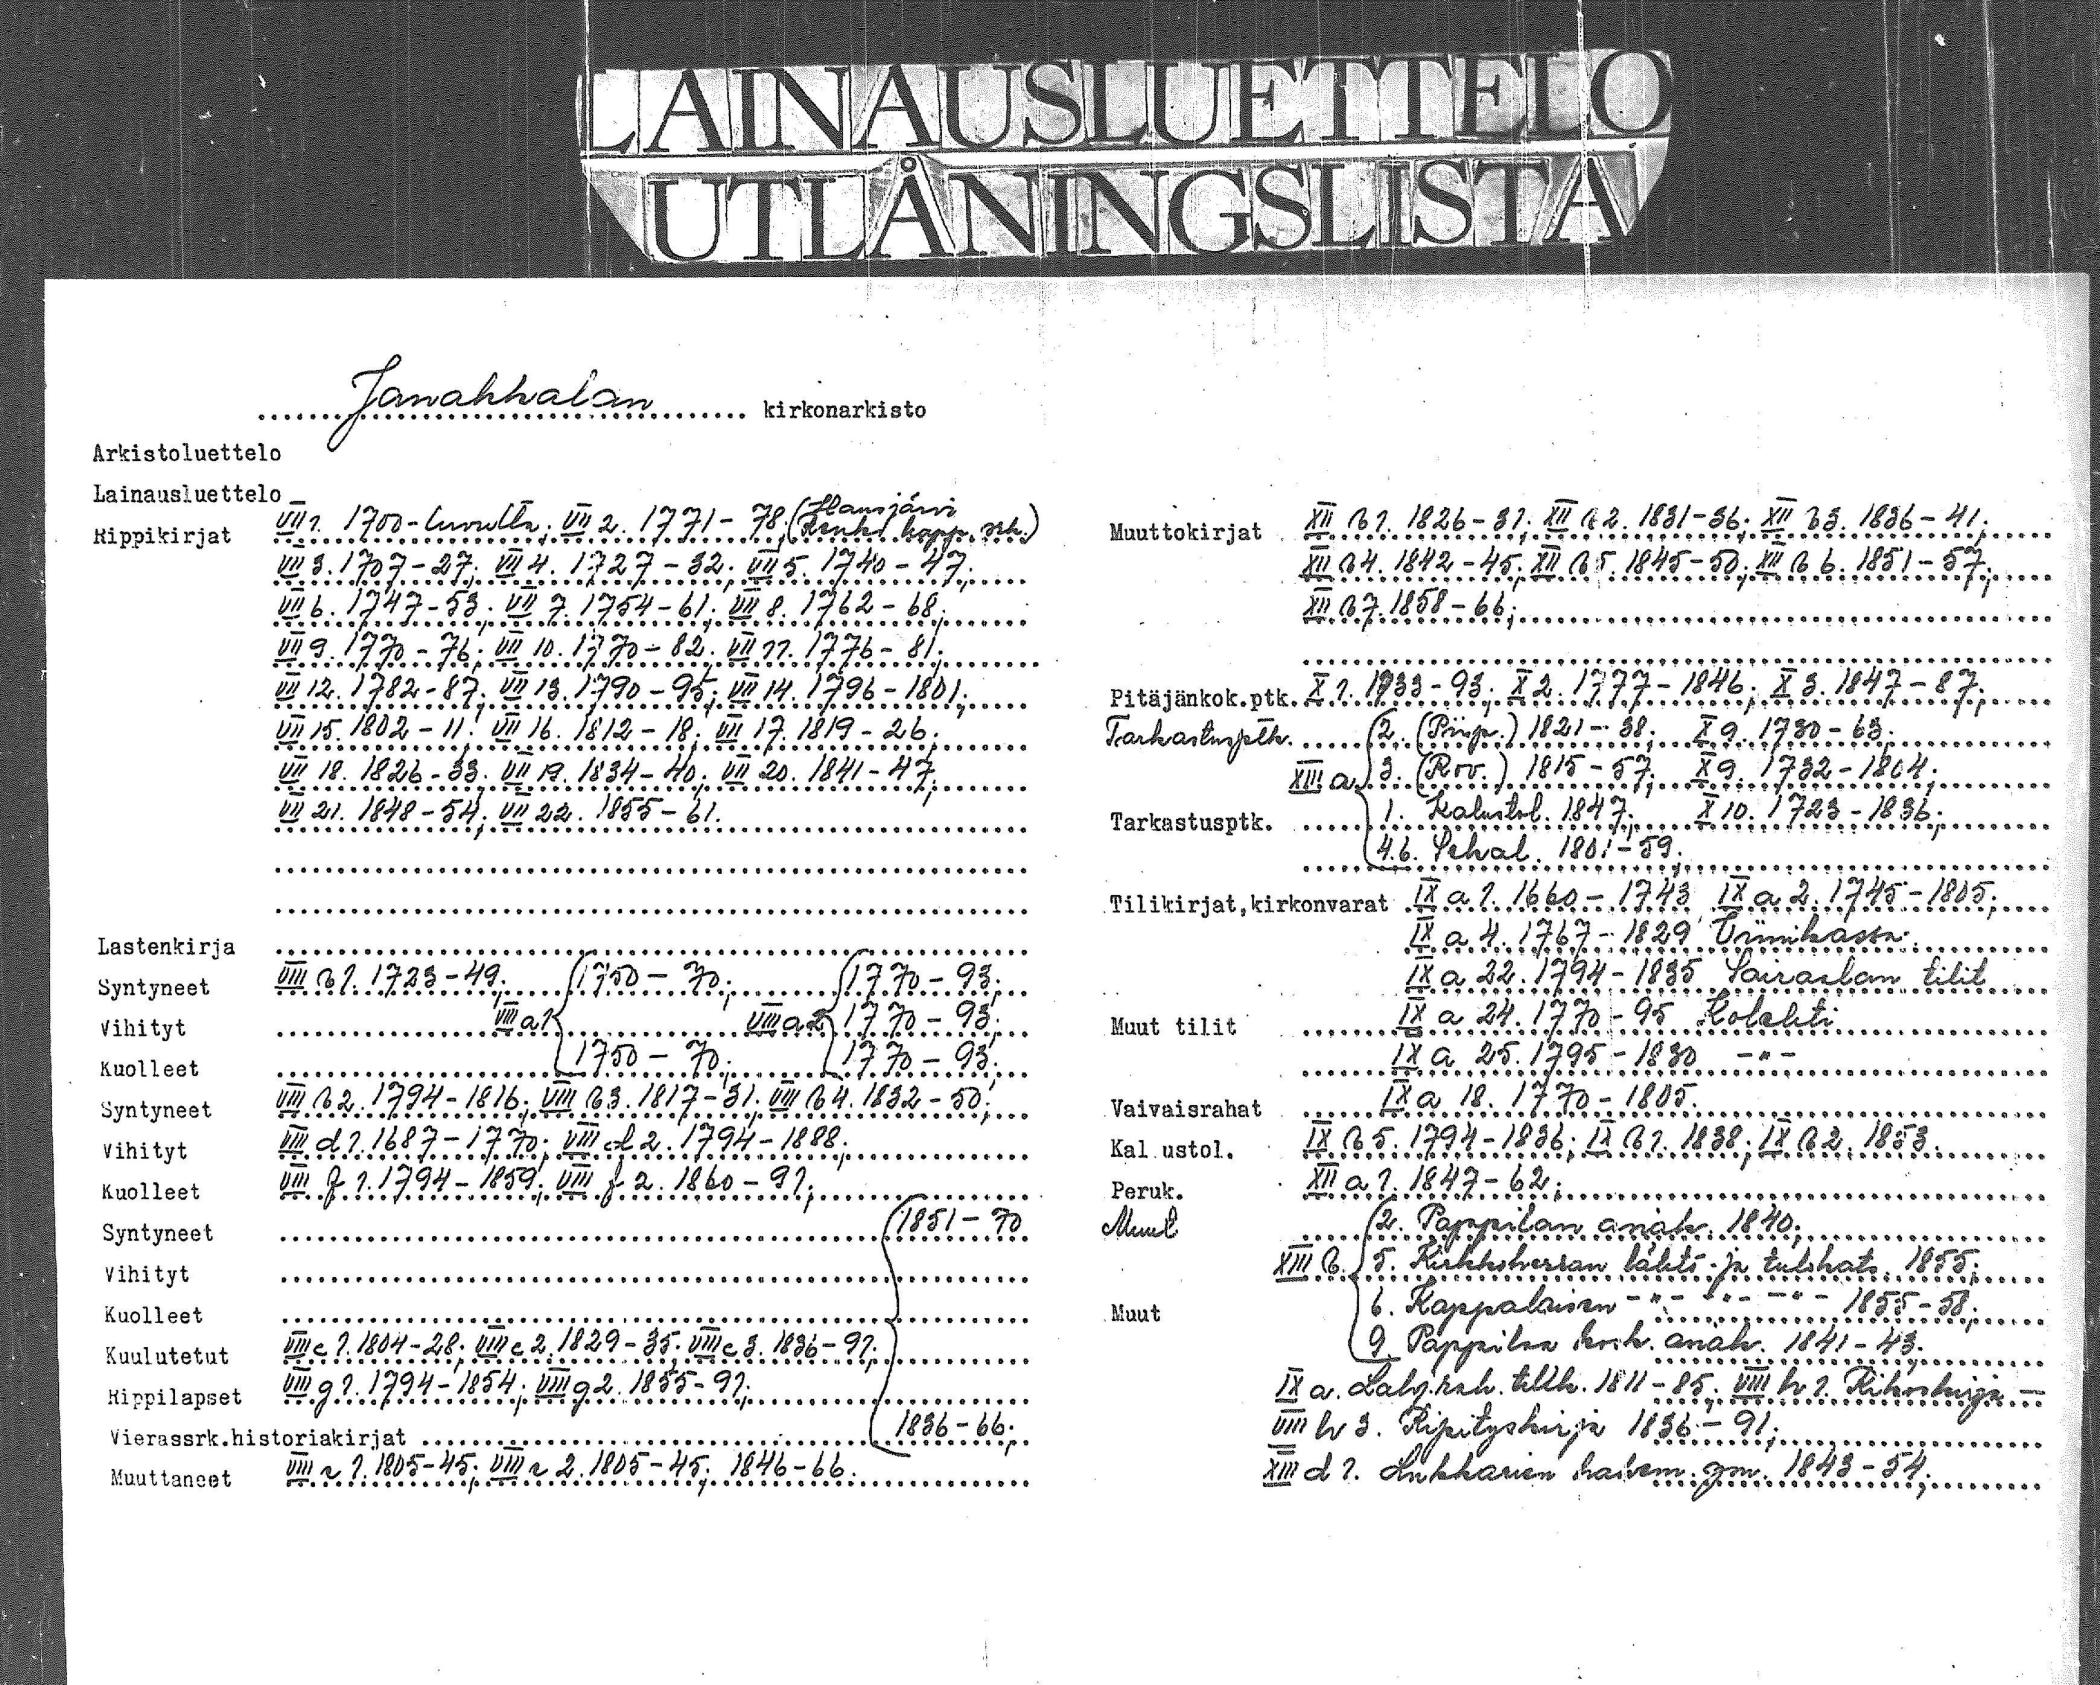 LAINAUSLUETTELO
UTLÅNINGSLISTA
Janakkalan kirkonarkisto
Arkistoluettelo
Lainausluettelo
Rippikirjat VII 1. 1700-luvulta; VII 2. 1771-78. (Hausjärvi
Renko kapp. srk.)
VII 3. 1707-27; VII 4. 1727-32; VII 5. 1740-47;
VII 6. 1747-53; VII 7. 1754-61; VII 8. 1762-68;
VII 9. 1770-76; VII 10. 1770-82; VII 11. 1776-81;
VII 12. 1782-87; VII 13. 1790-95; VII 14. 1796-1801;
VII 15. 1802-11; VII 16. 1812-18; VII 17. 1819-26;
VII 18. 1826-33; VII 19. 1834-40; VII 20. 1841-47;
VII 21. 1848-54; VII 22. 1855-61.
Lastenkirja
Syntyneet VIII b 1. 1723-49; 1750-70; 1770-93;
Vihityt VIII a 1 VIII a 2 1770-93;
Kuolleet 1750-70; 1770-93;
Syntyneet VIII b 2. 1794-1816; VIII b 3. 1817-31; VIII b 4. 1832-50;
Vihityt VIII d 1. 1687-1770; VIII d 2. 1794-1888;
Kuolleet VIII f 1. 1794-1859; VIII f 2. 1860-91;
Syntyneet 1851-70
Vihityt
Kuolleet
Kuulutetut VIII e 1. 1804-28; VIII e 2. 1829-35; VIII e 3. 1836-91;
Rippilapset VIII g 1. 1794-1854; VIII g 2. 1855-91;
Vierassrk.historiakirjat 1836-66;
Muuttaneet VIII 1. 1805-45; VIII 2. 1805-45; 1846-66.
Muuttokirjat XII b 1. 1826-31; XII b 2. 1831-36; XII b 3. 1836-41;
XII b 4. 1842-45; XII b 5. 1845-50; XII b 6. 1851-57;
XII b 7. 1858-66;
Pitäjänkok.ptk. X 1. 1733-93; X 2. 1777-1846; X 3. 1847-87;
Tarkastusptk. 2. (Piisp.) 1821-38; X 9. 1730-63;
XIII a 3. (Rov.) 1815-57; X 9. 1732-1804;
Tarkastusptk. 1. Kalustol. 1847; X 10. 1723-1836;
4.6. Sekal. 1801-59;
Tilikirjat,kirkonvarat IX a 1. 1660-1743 IX a 2. 1745-1805;
IX a 4. 1767-1829 Viinikassa;
IX a 22. 1794-1835 Sairaalan tilit
Muut tilit IX a 24. 1770-95 Kolehti
IX a 25. 1795-1830 -"-
Vaivaisrahat IX a 18. 1770-1805.
Kalustol. IX b 5. 1794-1836; IX b 1. 1838; IX b 2. 1853.
Peruk. XII a 1. 1847-62;
Muut 2. Pappilan asiak. 1840;
XIII b. 5. Kirkkoherran lähtö- ja tulokats. 1855;
Muut 6. Kappalaisen -"- -"- -"- 1855-58;
9. Pappilan kork. asiak. 1841-43;
IX a. rah. tilik. 1811-85; VIII h 1. Rikoskirja -
VIII h 3. Ripityskirja 1836-91;
XIII d 1. Lukkarien gm. 1843-54;